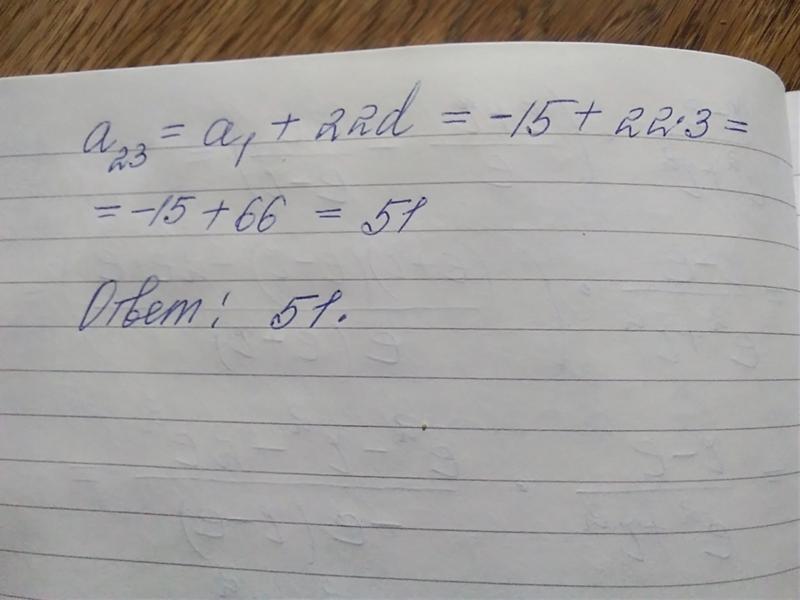 a₂₃ = a₁ + 22d = -15 + 22·3 =
= -15 + 66 = 51
Ответ: 51.